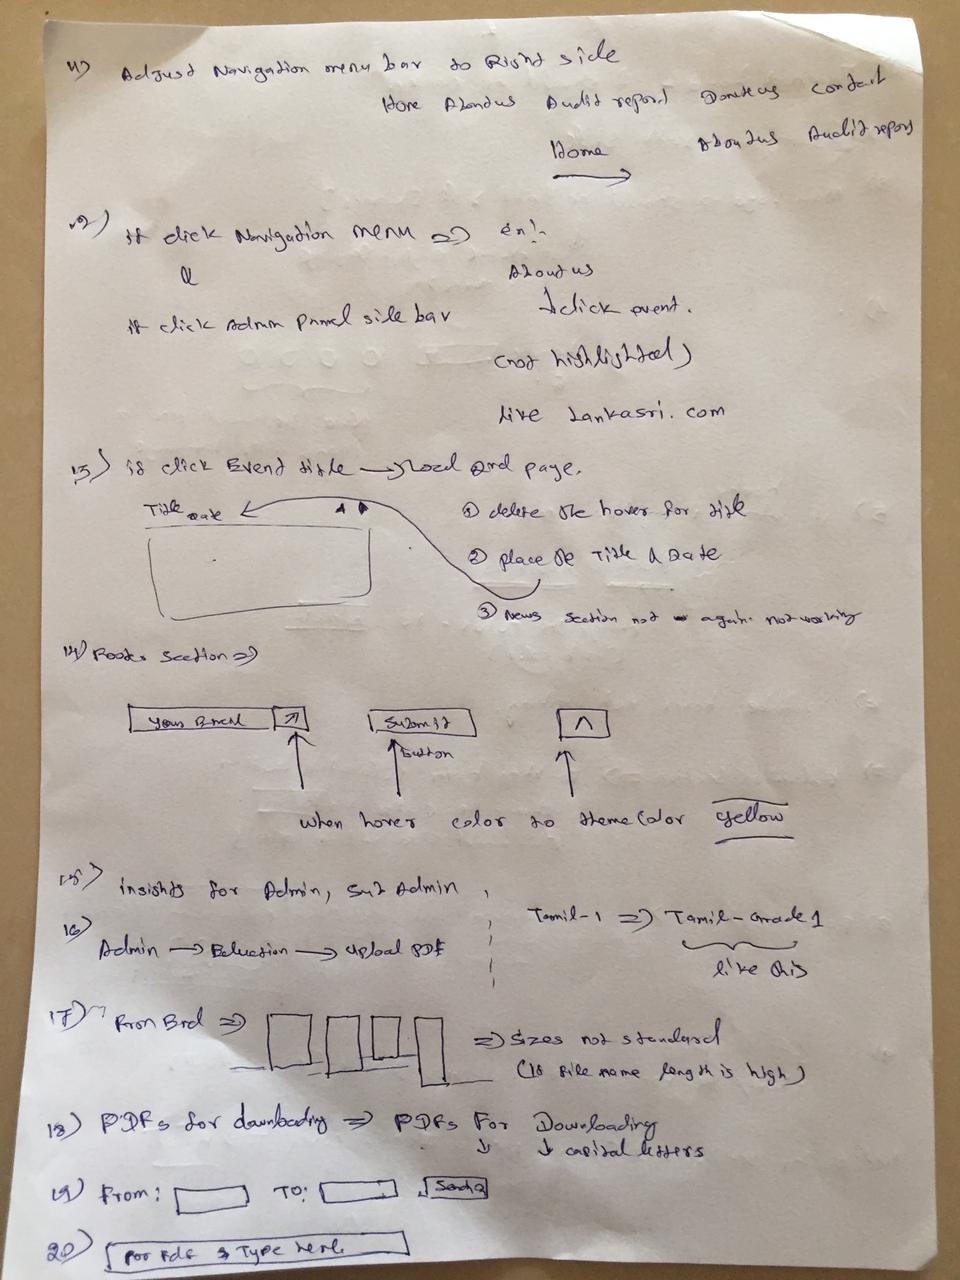 11) Adjust Navigation menu bar to Right side
Home Aboutus Audit report Donateus contact
Home Aboutus Audit report
12) if click Navigation menu => ex:-
&
Aboutus
if click Admin Panel side bar
click event.
(not highlighted)
like Lankasri.com
13) if click Event title → load 2nd page.
Title Date
① delete the hover for title
② place the Title & Date
③ News section not again. not working
14) Footer section =>
Your Email
Submit
button
when hover color to theme color yellow
15) insights for Admin, Sub Admin
Tamil-1 => Tamil-Grade 1
16)
Admin → Education → Upload PDF
like this
17) Fron End => => Sizes not standard
(if file name length is high)
18) PDFs for downloading => PDFs For Downloading
capital letters
19) From: TO:
20) Type here.